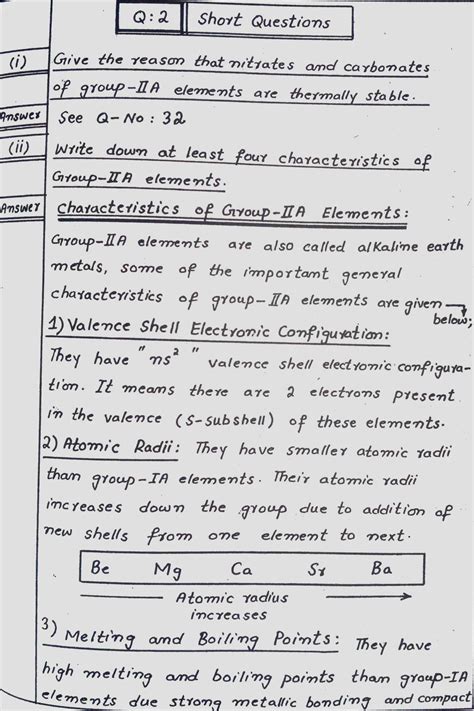 Q:2 Short Questions
(i) Give the reason that nitrates and carbonates
of group-IIA elements are thermally stable.
Answer See Q-No: 32
(ii) Write down at least four characteristics of
Group-IIA elements.
Answer Characteristics of Group-IIA Elements:
Group-IIA elements are also called alkaline earth
metals, some of the important general
characteristics of group-IIA elements are given
below;
1) Valence Shell Electronic Configuration:
They have "ns²" valence shell electronic configura-
tion. It means there are 2 electrons present
in the valence (s-subshell) of these elements.
2) Atomic Radii: They have smaller atomic radii
than group-IA elements. Their atomic radii
increases down the group due to addition of
new shells from one element to next.
Be Mg Ca Sr Ba
Atomic radius
increases
3) Melting and Boiling Points: They have
high melting and boiling points than group-IA
elements due strong metallic bonding and compact